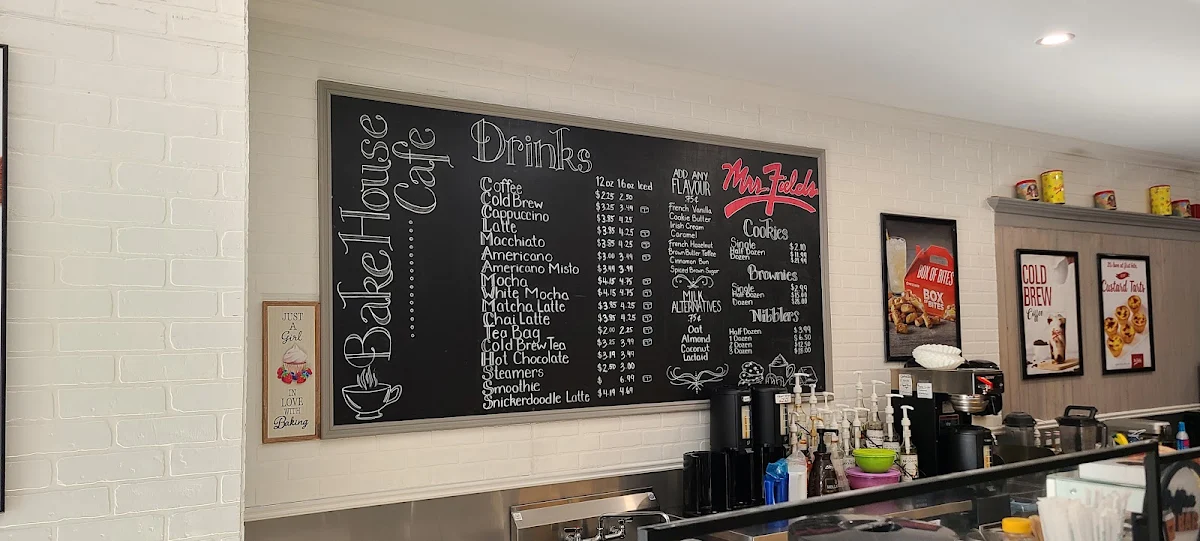 BakeHouse
Cafe
JUST
A
Girl
IN
LOVE
WITH
Baking
Drinks
12oz 16oz Iced
Coffee $2.25 2.50
Cold Brew $3.25 3.49
Cappuccino $3.85 4.25
Latte $3.85 4.25
Macchiato $3.85 4.25
Americano $3.00 3.49
Americano Misto $3.49 3.99
Mocha $4.15 4.75
White Mocha $4.15 4.75
Matcha Latte $3.85 4.25
Chai Latte $3.85 4.25
Tea Bag $2.00 2.25
Cold Brew Tea $3.25 3.99
Hot Chocolate $3.19 3.49
Steamers $2.50 3.00
Smoothie $ 6.99
Snickerdoodle Latte $4.19 4.69
ADD ANY
FLAVOUR
75¢
French Vanilla
Cookie Butter
Irish Cream
Caramel
French Hazelnut
Brown Butter Toffee
Cinnamon Bun
Spiced Brown Sugar
MILK
ALTERNATIVES
75¢
Oat
Almond
Coconut
Lactaid
Mrs. Fields
Cookies
Single $2.10
Half Dozen $11.99
Dozen
Brownies
Single $2.99
Half Dozen $15.00
Dozen $28.00
Nibblers
Half Dozen $3.99
1 Dozen $6.50
2 Dozen $12.50
3 Dozen $18.00
BOX OF BITES
BOX
OF
BITES
COLD
BREW
Coffee
Custard Tarts